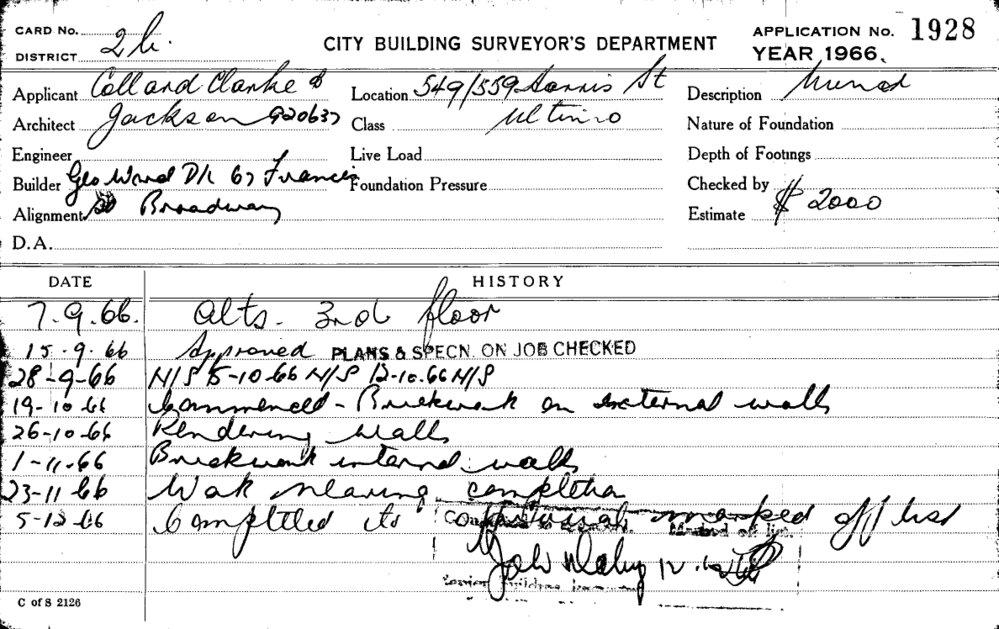 CARD No. 2b.
DISTRICT
CITY BUILDING SURVEYOR'S DEPARTMENT
APPLICATION No. 1928
YEAR 1966.
Applicant Collard Clarke &
Location 549/559 Harris St
Description
Architect Jackson 920637
Class Ultimo
Nature of Foundation
Engineer
Live Load
Depth of Footings
Builder Geo Ward P/L 67 Francis
Foundation Pressure
Checked by
Alignment St Broadway
Estimate $ 2000
D.A.
DATE HISTORY
7.9.66. Alts. 3rd floor
15.9.66 Approved PLANS & SPECN. ON JOB CHECKED
28-9-66 N/S 5-10-66 N/S 12-10.66 N/S
19-10-66 Commenced - Brickwork on external walls
26-10-66 Rendering walls
1-11-66 Brickwork internal walls
23-11-66 Work nearing completion
5-12-66 Completed to approval marked off list
Marked off list.
12.12.66
C of S 2126